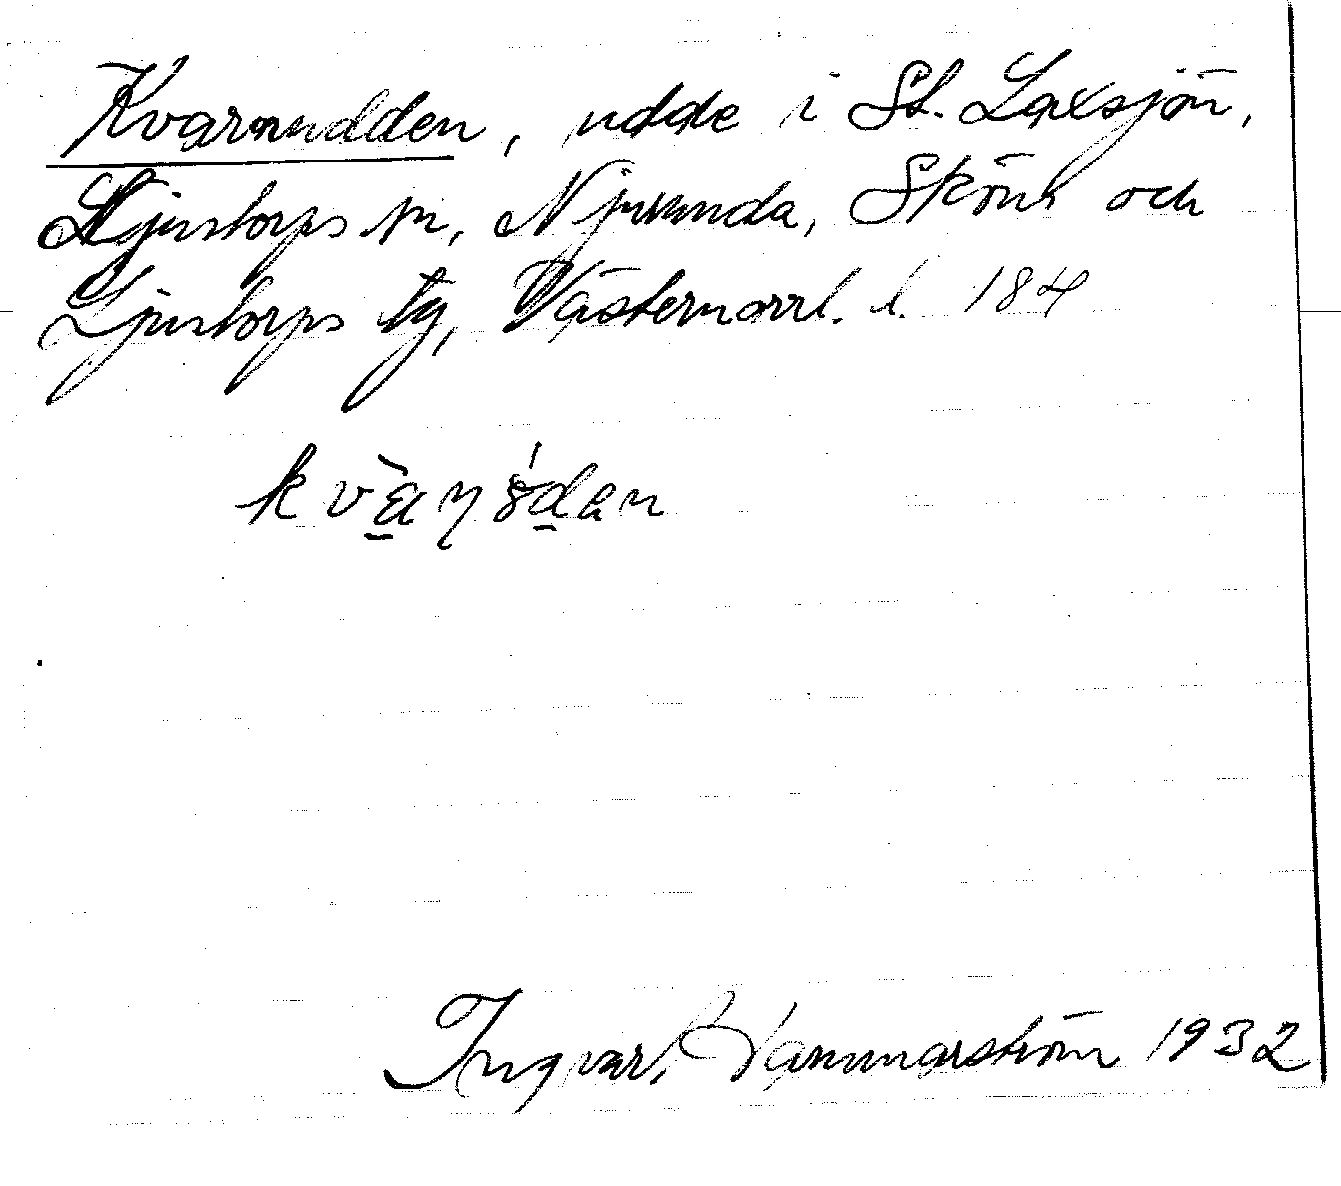 Kvarnudden, udde i St. Laxsjön,
Ljustorps sn, Njurunda, Sköns och
Ljustorps tg, Västernorrl. l. 184
Ingvar 1932